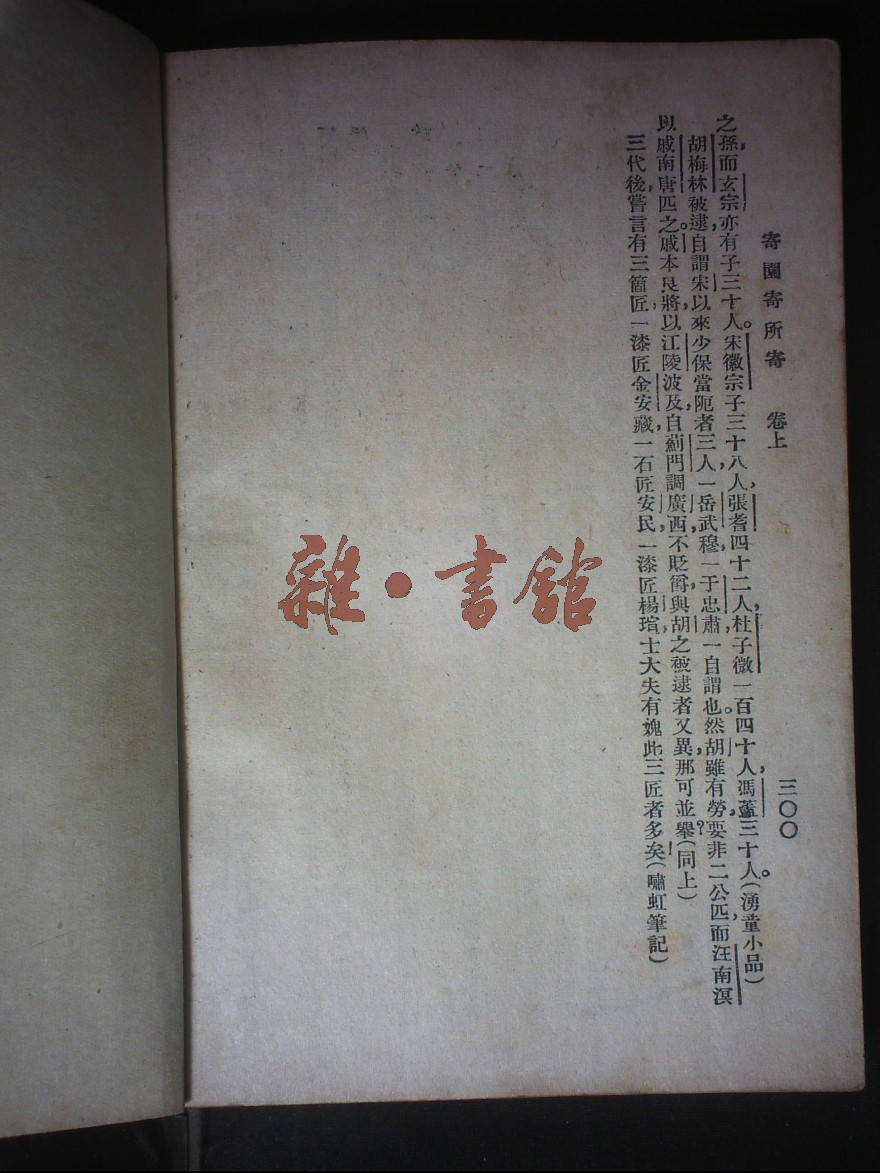 寄園寄所寄 卷上 三〇〇
之孫,而玄宗亦有子三十人。宋徽宗子三十八人,張耆四十二人,杜子微一百四十人,馮藎三十人。(湧童小品)
胡梅林被逮,自謂宋以來少保當阨者三人,一岳武穆,一于忠肅,一自謂也。然胡雖有勞,要非二公匹,而汪南溟
以戚南唐匹之。戚本良將,以江陵波及,自薊門調廣西,不貶爵,與胡之被逮者又異,那可並舉?(同上)
三代後,嘗言有三箇匠,一漆匠金安藏,一石匠安民,一漆匠楊瑄,士大夫有媿此三匠者多矣!(嘯虹筆記)
雜·書館